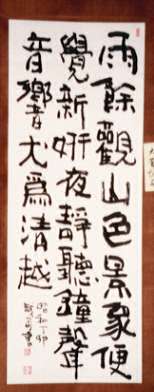 雨餘觀山色景象便
覺新妍夜靜聽鐘聲
音響尤爲清越
昭和丁卯